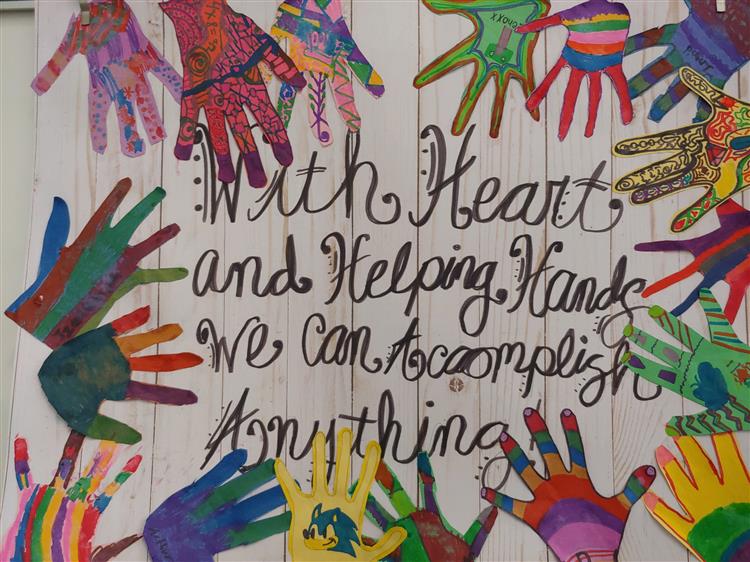 With Heart
and Helping Hands
We Can Accomplish
Anything!